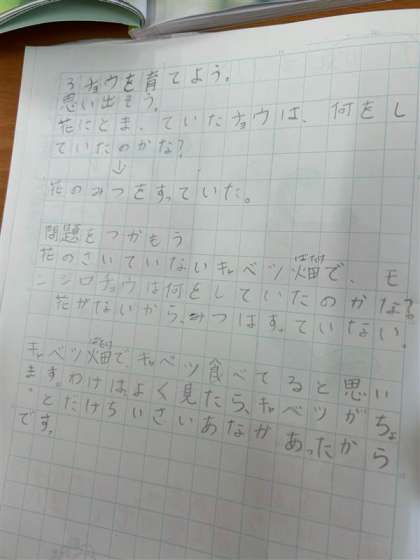 3 チョウを育てよう。
思い出そう。
花にとまっていたチョウは、何をし
ていたのかな?
↓
花のみつをすっていた。
問題をつかもう
花のさいていないキャベツ畑で、モ
ンシロチョウは何をしていたのかな?
花がないから、みつはすっていない。
キャベツ畑で、キャベツ食べてると思い
ます。わけはよく見たら、キャベツがちょ
っとだけちいさいあながあったから
です。